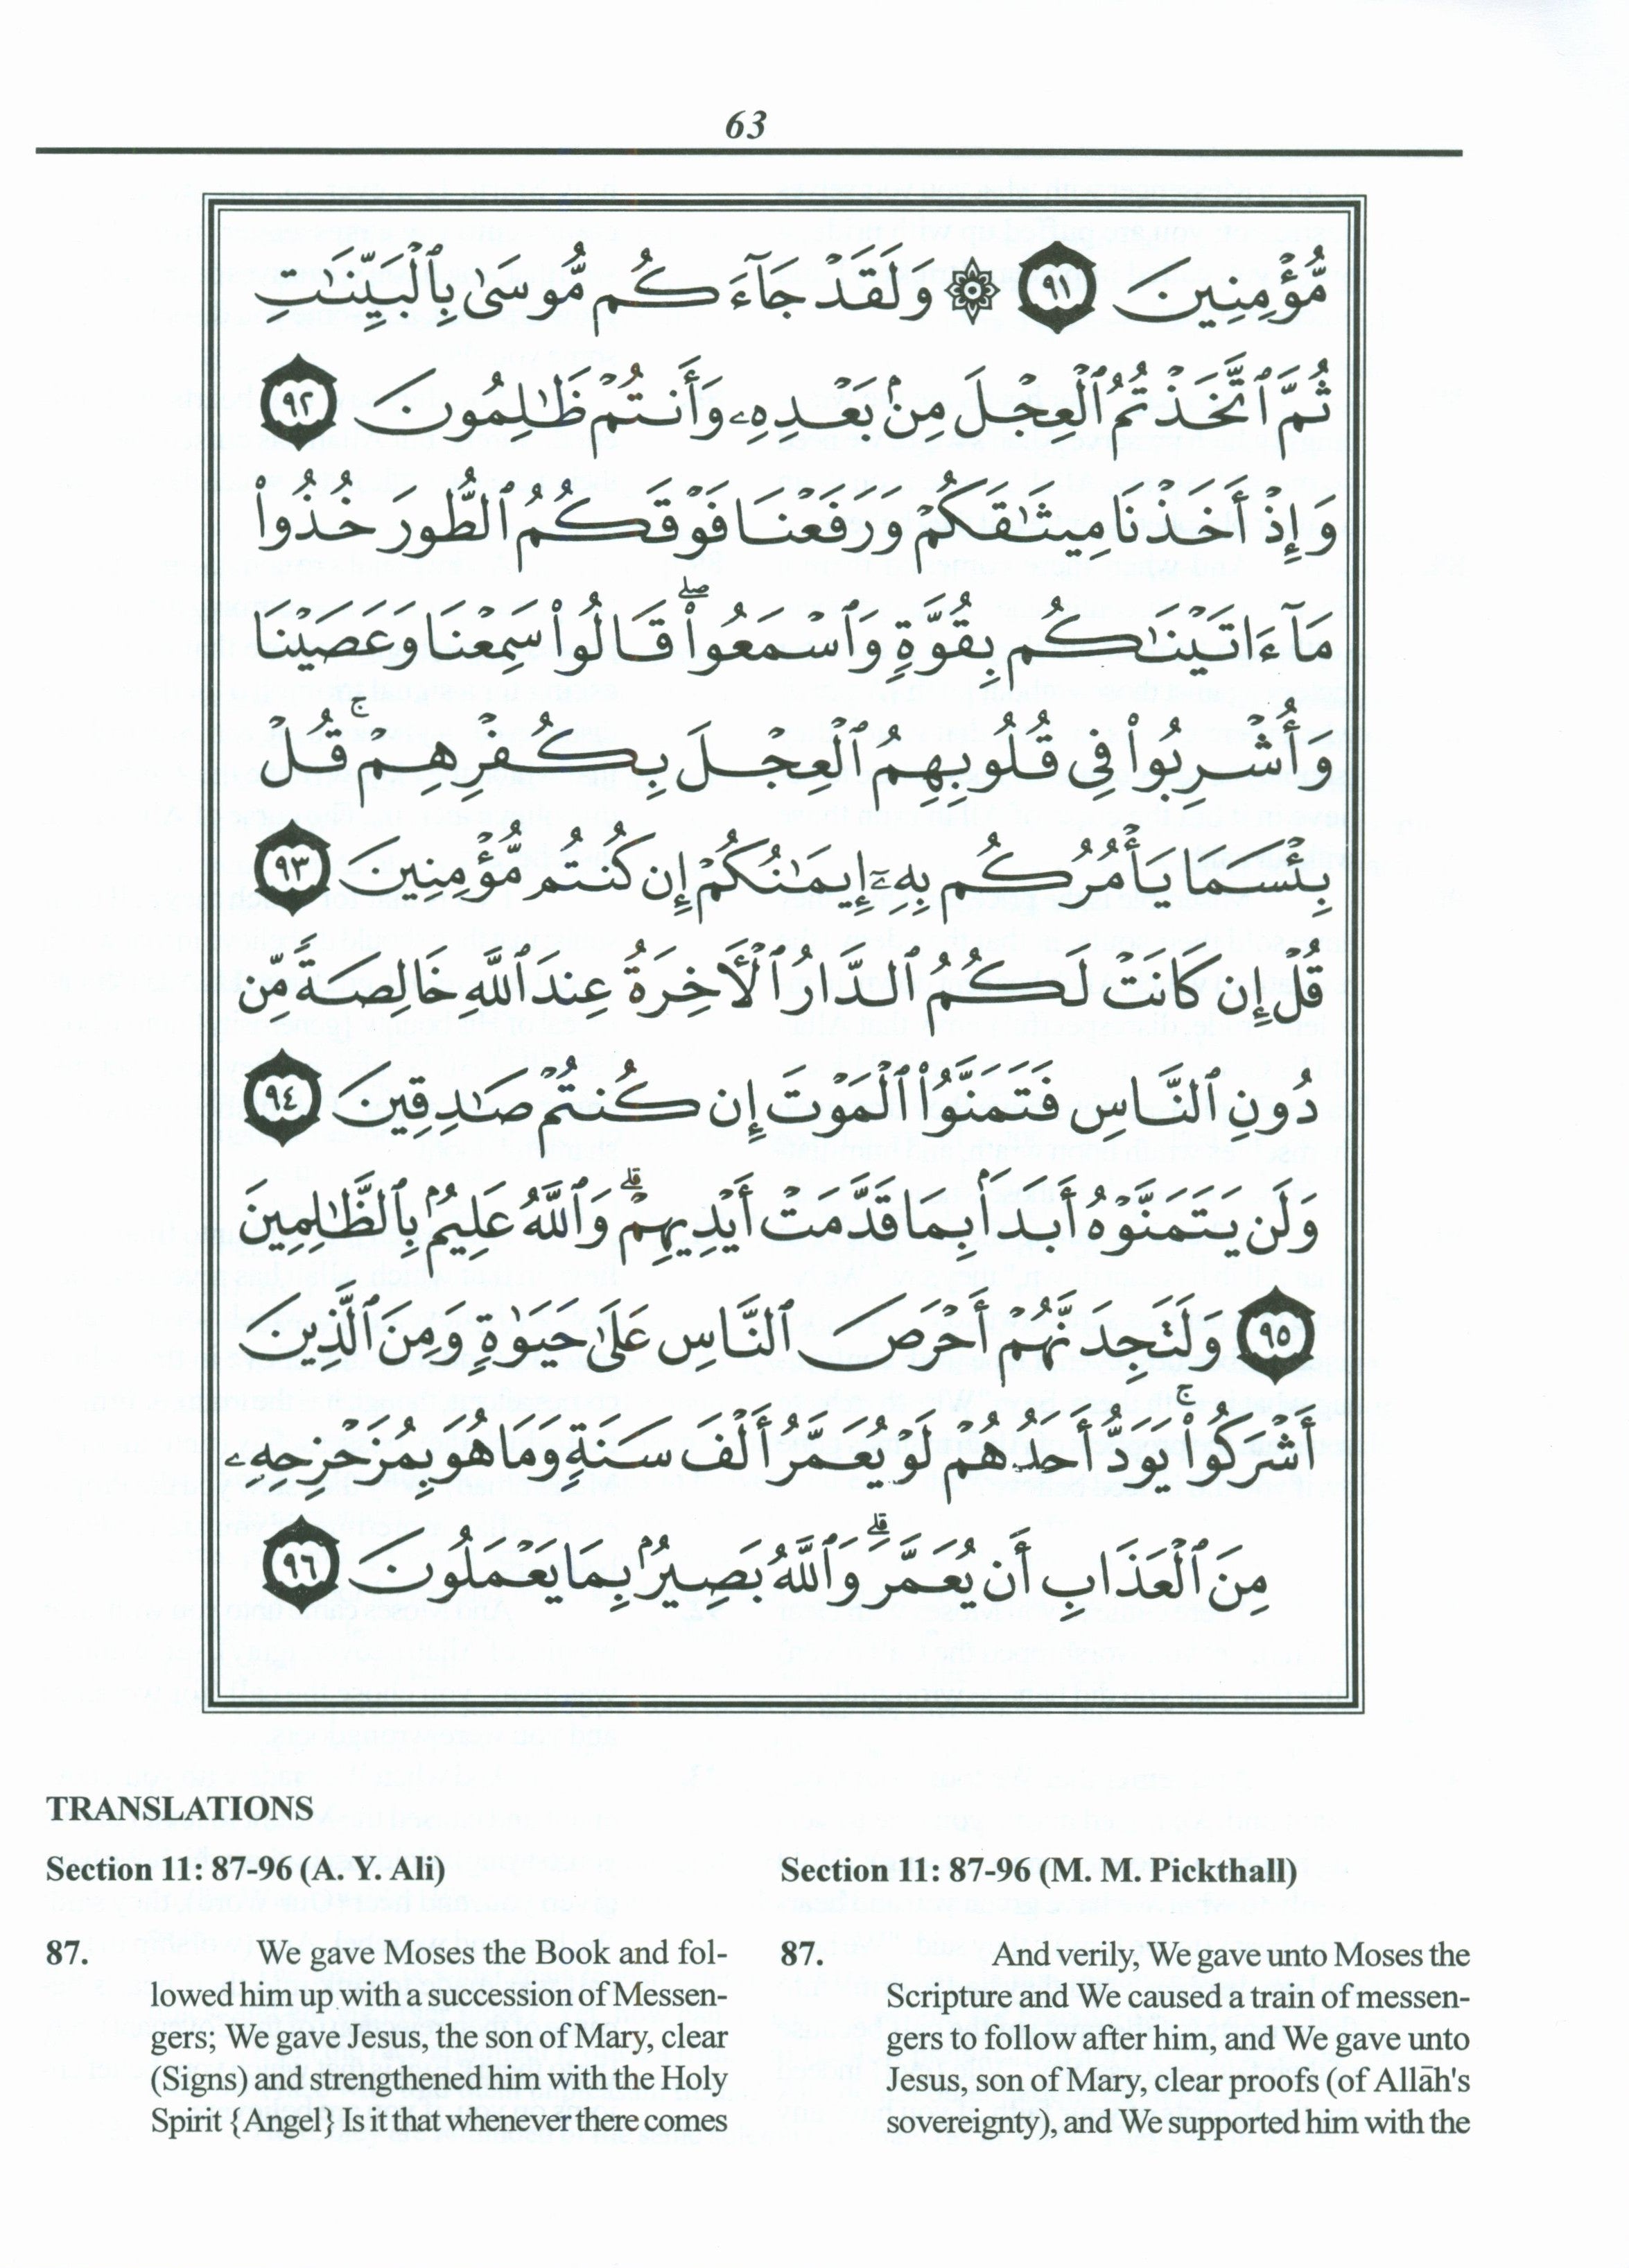 63
مُّؤْمِنِينَ ٩١ ۞ وَلَقَدْ جَآءَكُم مُّوسَىٰ بِٱلْبَيِّنَـٰتِ
ثُمَّ ٱتَّخَذْتُمُ ٱلْعِجْلَ مِنۢ بَعْدِهِۦ وَأَنتُمْ ظَـٰلِمُونَ ٩٢
وَإِذْ أَخَذْنَا مِيثَـٰقَكُمْ وَرَفَعْنَا فَوْقَكُمُ ٱلطُّورَ خُذُوا۟
مَآ ءَاتَيْنَـٰكُم بِقُوَّةٍ وَٱسْمَعُوا۟ ۖ قَالُوا۟ سَمِعْنَا وَعَصَيْنَا
وَأُشْرِبُوا۟ فِى قُلُوبِهِمُ ٱلْعِجْلَ بِكُفْرِهِمْ ۚ قُلْ
بِئْسَمَا يَأْمُرُكُم بِهِۦٓ إِيمَـٰنُكُمْ إِن كُنتُم مُّؤْمِنِينَ ٩٣
قُلْ إِن كَانَتْ لَكُمُ ٱلدَّارُ ٱلْأَخِرَةُ عِندَ ٱللَّهِ خَالِصَةً مِّن
دُونِ ٱلنَّاسِ فَتَمَنَّوُا۟ ٱلْمَوْتَ إِن كُنتُمْ صَـٰدِقِينَ ٩٤
وَلَن يَتَمَنَّوْهُ أَبَدًۢا بِمَا قَدَّمَتْ أَيْدِيهِمْ ۗ وَٱللَّهُ عَلِيمٌۢ بِٱلظَّـٰلِمِينَ
٩٥ وَلَتَجِدَنَّهُمْ أَحْرَصَ ٱلنَّاسِ عَلَىٰ حَيَوٰةٍ وَمِنَ ٱلَّذِينَ
أَشْرَكُوا۟ ۚ يَوَدُّ أَحَدُهُمْ لَوْ يُعَمَّرُ أَلْفَ سَنَةٍ وَمَا هُوَ بِمُزَحْزِحِهِۦ
مِنَ ٱلْعَذَابِ أَن يُعَمَّرَ ۗ وَٱللَّهُ بَصِيرٌۢ بِمَا يَعْمَلُونَ ٩٦
TRANSLATIONS
Section 11: 87-96 (A. Y. Ali)
87. We gave Moses the Book and fol-
lowed him up with a succession of Messen-
gers; We gave Jesus, the son of Mary, clear
(Signs) and strengthened him with the Holy
Spirit {Angel} Is it that whenever there comes
Section 11: 87-96 (M. M. Pickthall)
87. And verily, We gave unto Moses the
Scripture and We caused a train of messen-
gers to follow after him, and We gave unto
Jesus, son of Mary, clear proofs (of Allāh's
sovereignty), and We supported him with the